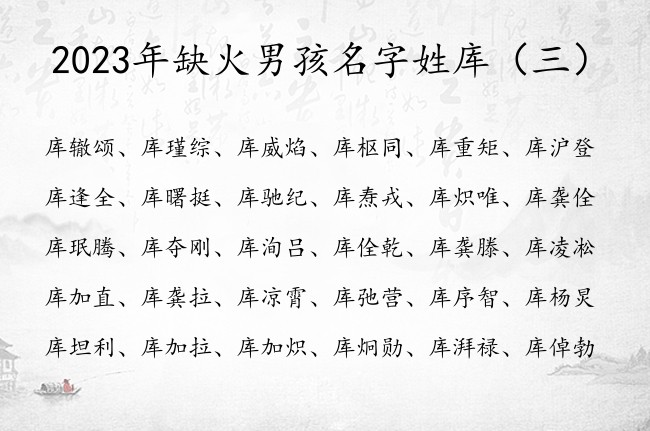 2023年缺火男孩名字姓库（三）
库辙颂、库瑾综、库威焰、库枢同、库重矩、库沪登
库逢全、库曙挺、库驰纪、库焘戎、库炽唯、库龚佺
库珉腾、库夺刚、库洵吕、库佺乾、库龚滕、库凌凇
库加直、库龚拉、库凉霄、库弛营、库序智、库杨炅
库坦利、库加拉、库加炽、库炯勋、库湃禄、库倬勃